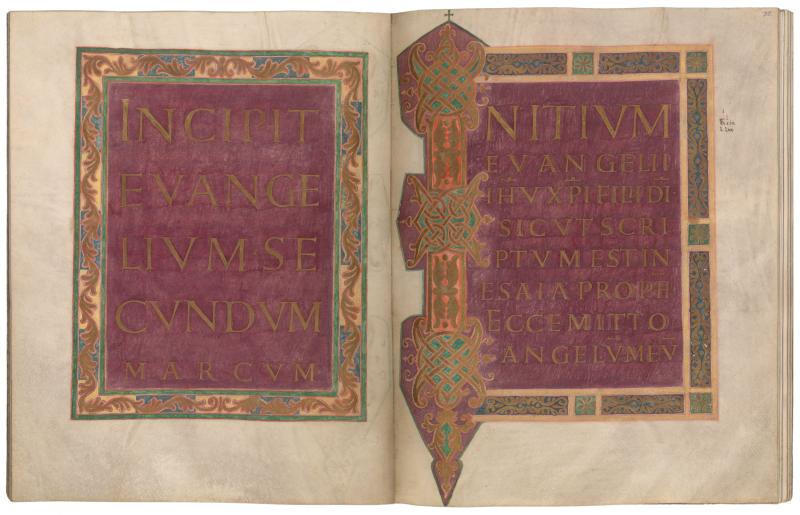 INCIPIT
EVANGE
LIVM SE
CVNDVM
MARCVM
INITIVM
EVANGELII
IHU XPI FILII DI·
SICUT SCRI
PTVM EST IN
ESAIA PROPH
ECCE MITTO
ANGELVM MEV